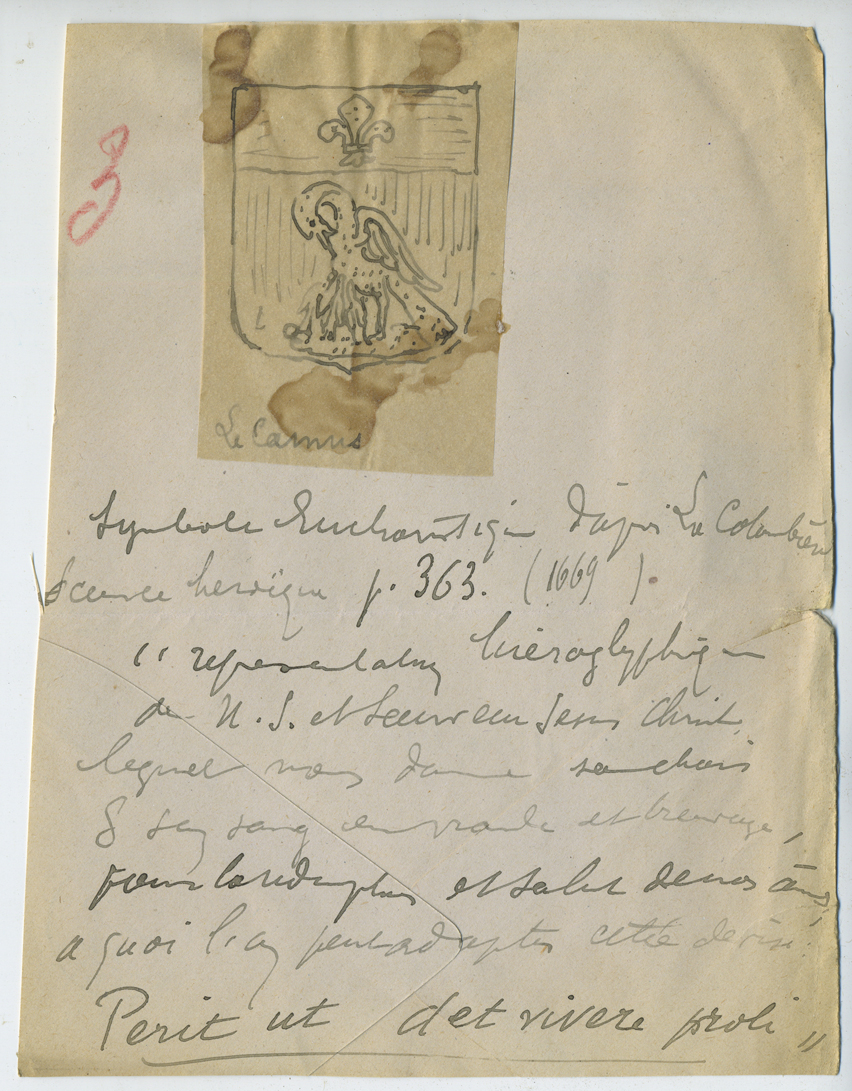 3
Le Camus
Symbole Eucharistique d'après La Colombière
Science heroïque p. 363. (1669).
"representation hiéroglyphique
de N. S. et Sauveur Jesus Christ,
lequel nous donne sa chair
& son sang en viande et breuvage,
pour la redemption et salut de nos âmes,
a quoi l'on peut adapter cette devise:
Perit ut det vivere proli"